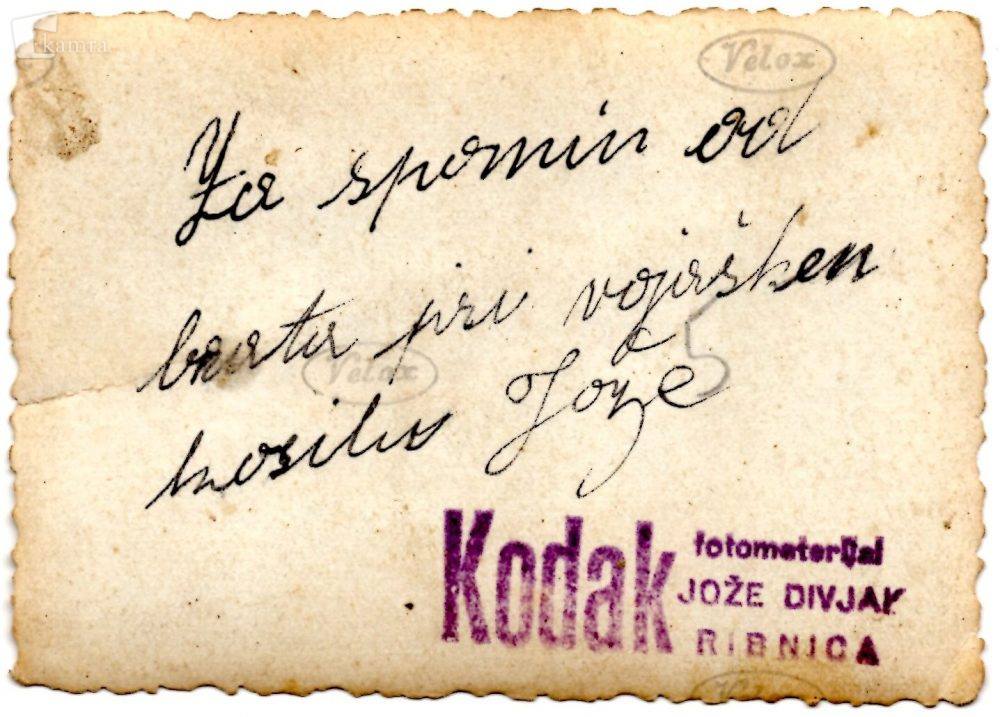 kamra
Velox
Za spomin od
brata pri vojaškem
kosilu Jože
5
Velox
Kodak
fotomaterijal
JOŽE DIVJAK
RIBNICA
Velox